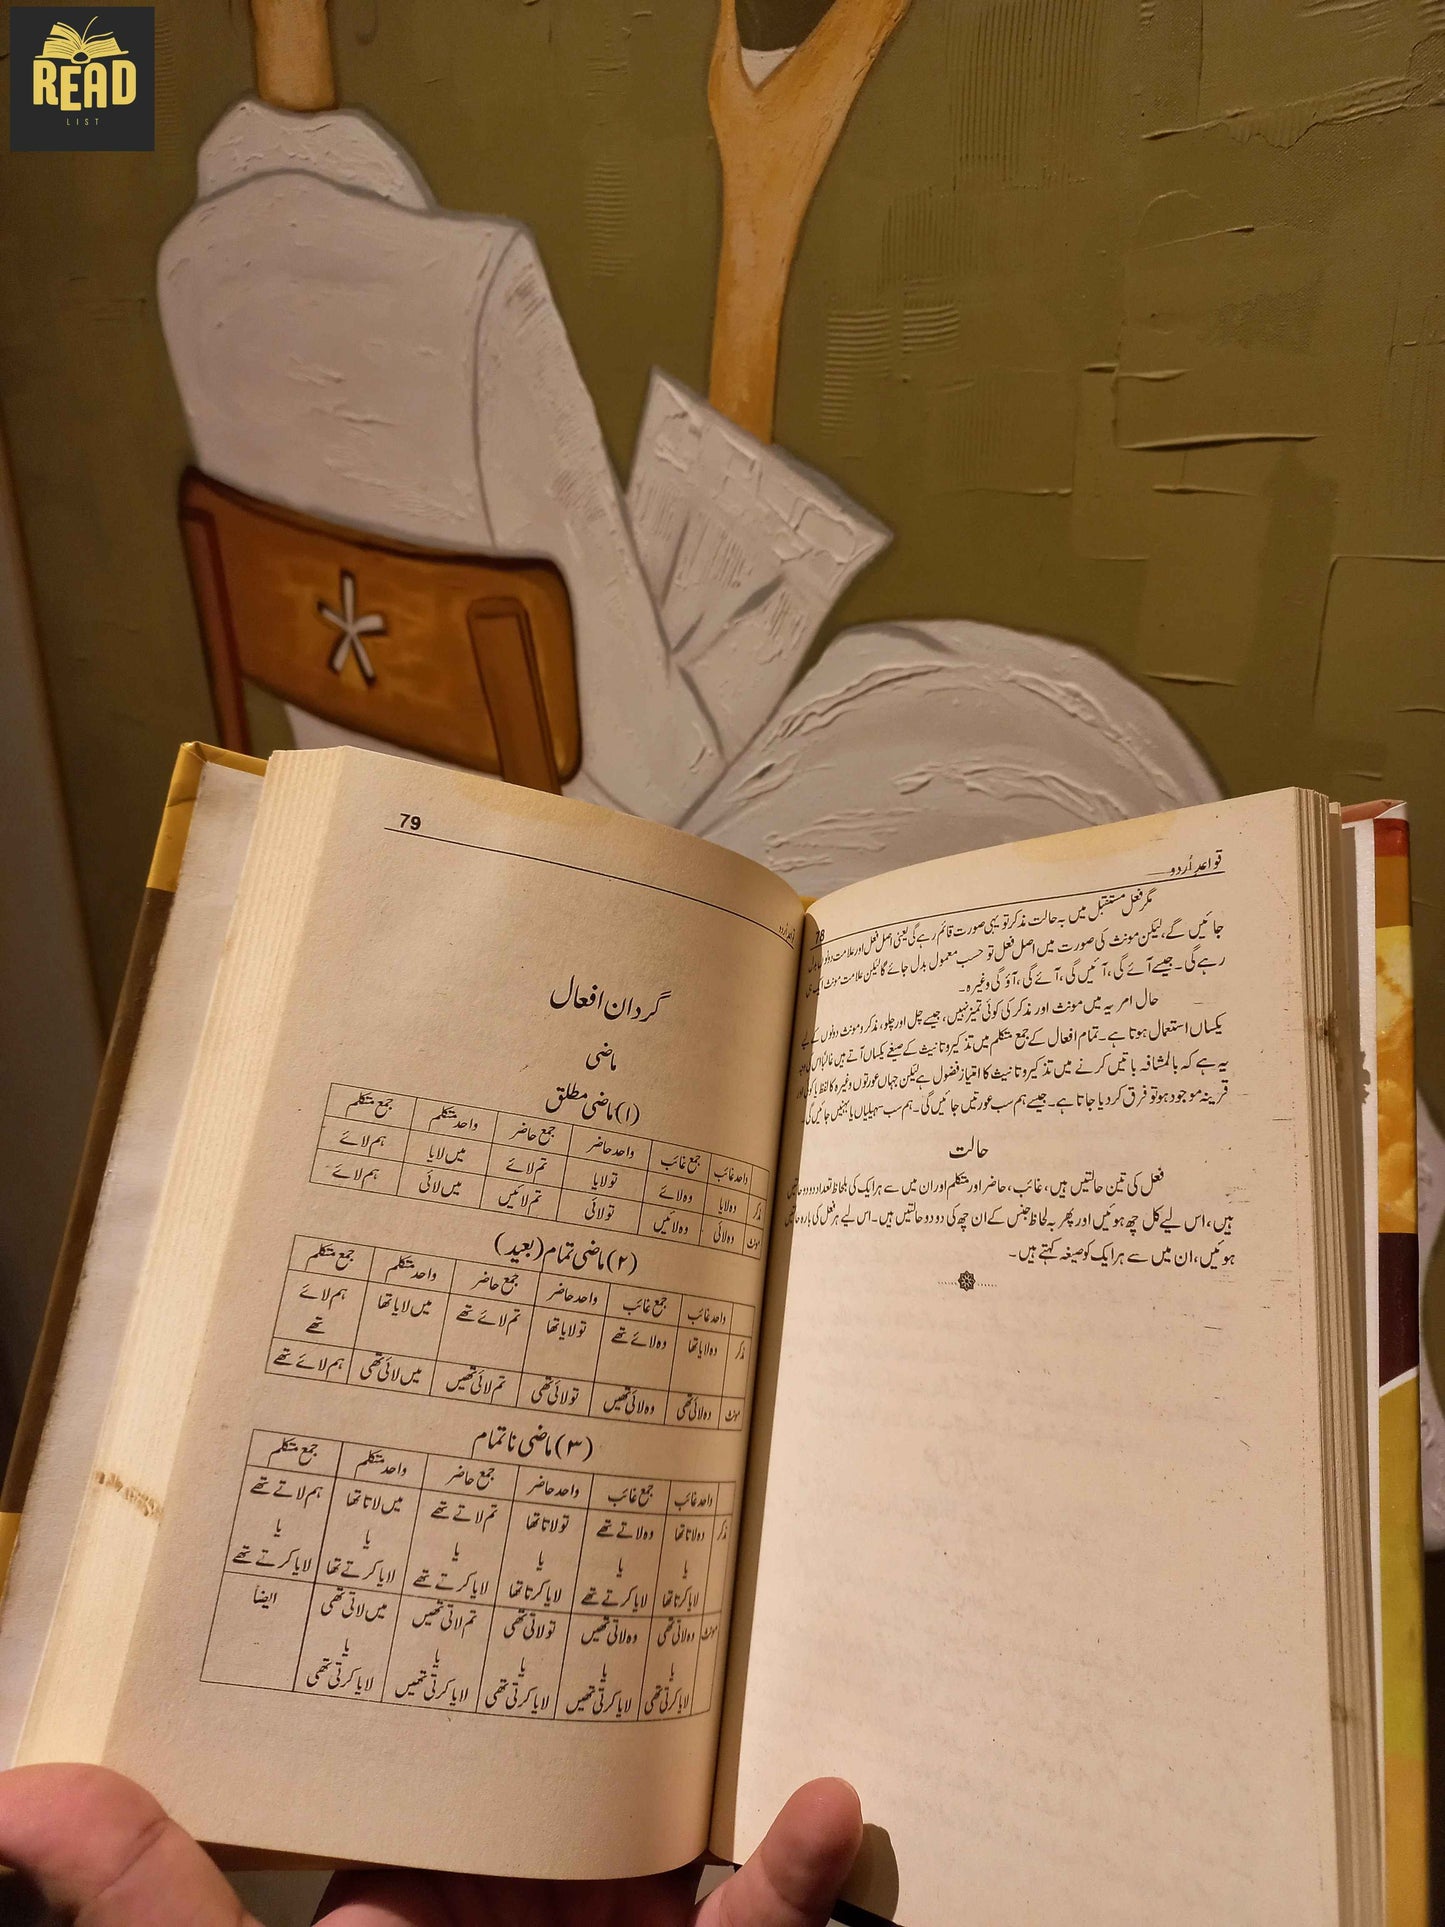 READ
LIST
قواعدِ اُردو
78
مگر فعل مستقبل میں بہ حالت مذکر تو یہی صورت قائم رہے گی یعنی اصل فعل اور علامت دونوں بدل
جائیں گے، لیکن مونث کی صورت میں اصل فعل تو حسب معمول بدل جائے گا لیکن علامت مونث ایک ہی
رہے گی۔ جیسے آئے گی، آئیں گی، آئے گی، آؤ گی وغیرہ۔
حال امریہ میں مونث اور مذکر کی کوئی تمیز نہیں، جیسے چل اور چلو، مذکر و مونث دونوں کے لیے
یکساں استعمال ہوتا ہے۔ تمام افعال کے جمع متکلم میں تذکیر و تانیث کے صیغے یکساں آتے ہیں غالباً اس کی وجہ
یہ ہے کہ بالمشافہ باتیں کرنے میں تذکیر و تانیث کا امتیاز فضول ہے لیکن جہاں عورتوں وغیرہ کا لفظ یا کوئی اور
قرینہ موجود ہو تو فرق کر دیا جاتا ہے۔ جیسے ہم سب عورتیں جائیں گی۔ ہم سب سہیلیاں یا بہنیں جائیں گی۔
حالت
فعل کی تین حالتیں ہیں، غائب، حاضر اور متکلم اور ان میں سے ہر ایک کی بلحاظ تعداد دو دو حالتیں
ہیں، اس لیے کل چھ ہوئیں اور پھر بہ لحاظ جنس کے ان چھ کی دو دو حالتیں ہیں۔ اس لیے ہر فعل کی بارہ حالتیں
ہوئیں، ان میں سے ہر ایک کو صیغہ کہتے ہیں۔
قواعدِ اُردو
79
گردان افعال
ماضی
(۱) ماضی مطلق
واحد غائب جمع غائب واحد حاضر جمع حاضر واحد متکلم جمع متکلم
مذکر وہ لایا وہ لائے تو لایا تم لائے میں لایا ہم لائے
مونث وہ لائی وہ لائیں تو لائی تم لائیں میں لائی ہم لائے
(۲) ماضی تمام (بعید)
واحد غائب جمع غائب واحد حاضر جمع حاضر واحد متکلم جمع متکلم
مذکر وہ لایا تھا وہ لائے تھے تو لایا تھا تم لائے تھے میں لایا تھا ہم لائے
تھے
مونث وہ لائی تھی وہ لائی تھیں تو لائی تھی تم لائی تھیں میں لائی تھی ہم لائے تھے
(۳) ماضی ناتمام
واحد غائب جمع غائب واحد حاضر جمع حاضر واحد متکلم جمع متکلم
مذکر وہ لاتا تھا وہ لاتے تھے تو لاتا تھا تم لاتے تھے میں لاتا تھا ہم لاتے تھے
یا یا یا یا یا یا
لایا کرتا تھا لایا کرتے تھے لایا کرتا تھا لایا کرتے تھے لایا کرتے تھا لایا کرتے تھے
مونث وہ لاتی تھی وہ لاتی تھیں تو لاتی تھی تم لاتی تھیں میں لاتی تھی ایضاً
یا یا یا یا یا
لایا کرتی تھی لایا کرتی تھیں لایا کرتی تھی لایا کرتی تھیں لایا کرتی تھی